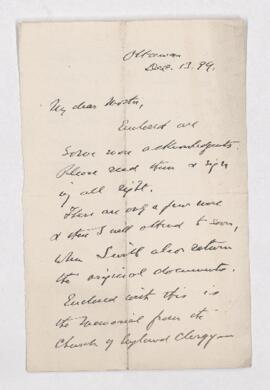 Ottawa
Dec. 13. 99.
My dear
Enclosed are
some more acknowledgments.
Please read them & sign
if all right.
There are only a few more
& these I will attend to soon,
when I will also return
the original documents.
Enclosed with this is
the Memorial from the
Church of England Clergyman